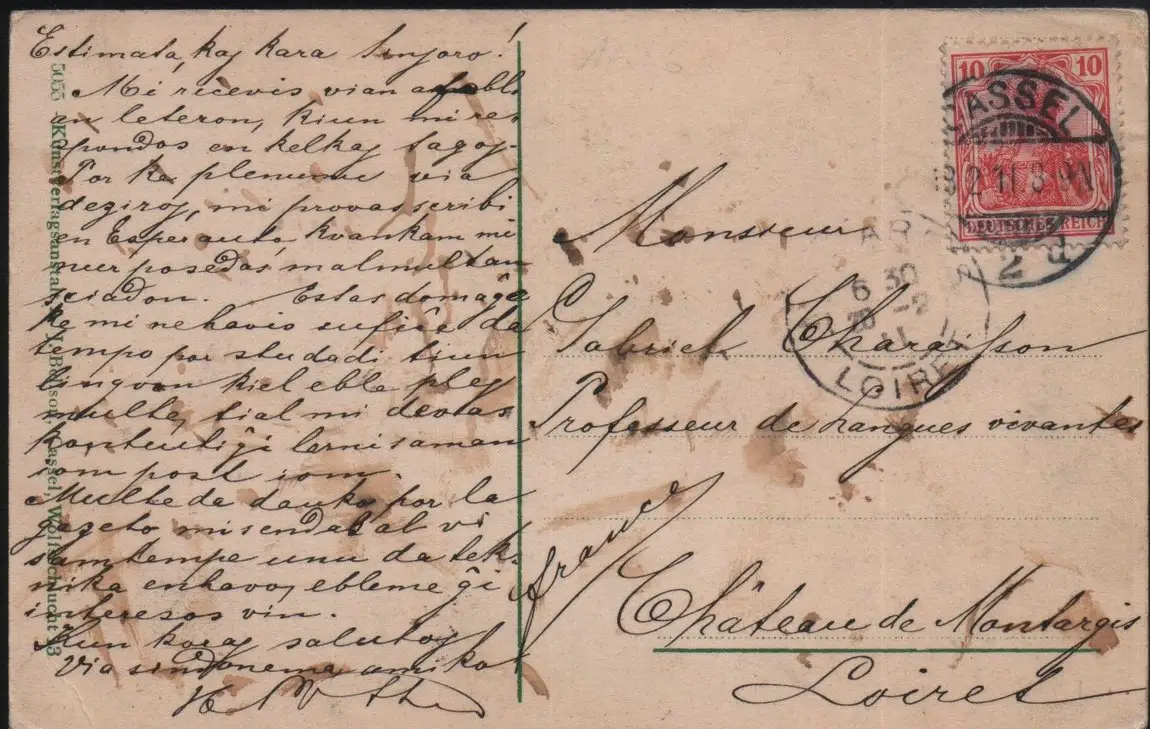 Estimata, kaj kara Sinjoro!
Mi ricevis vian afabl
an leteron, kiun mi res
pondos en kelkaj tagoj.
Por ke plenumu via
deziroj, mi provas scribi
en Esperanto, kvankam mi
nur posedas malmultan
sciadon. Estas domaĝe
ke mi ne havis sufiĉe da
tempo por studadi tiun
lingvon kiel eble plej
multe, tial mi devtas
kontentiĝi lerni saman
som post iom.
Multe da danko por la
gazeto mi sendas al vi
samtempe unu da tek-
nika enhavo, eble me ĝi
interesos vin.
Kun koraj salutoj
Via sindonema amiko
5055 Kunstverlagsanstalt Cassel, Wolfsschlucht
10 10
DEUTSCHES REICH
CASSEL
2.11.8-9V.
2 d
6 30
-2
11
LOIRET
Monsieur
Gabriel Charaisson
Professeur de Langues vivantes
france
Château de Montargis
Loiret